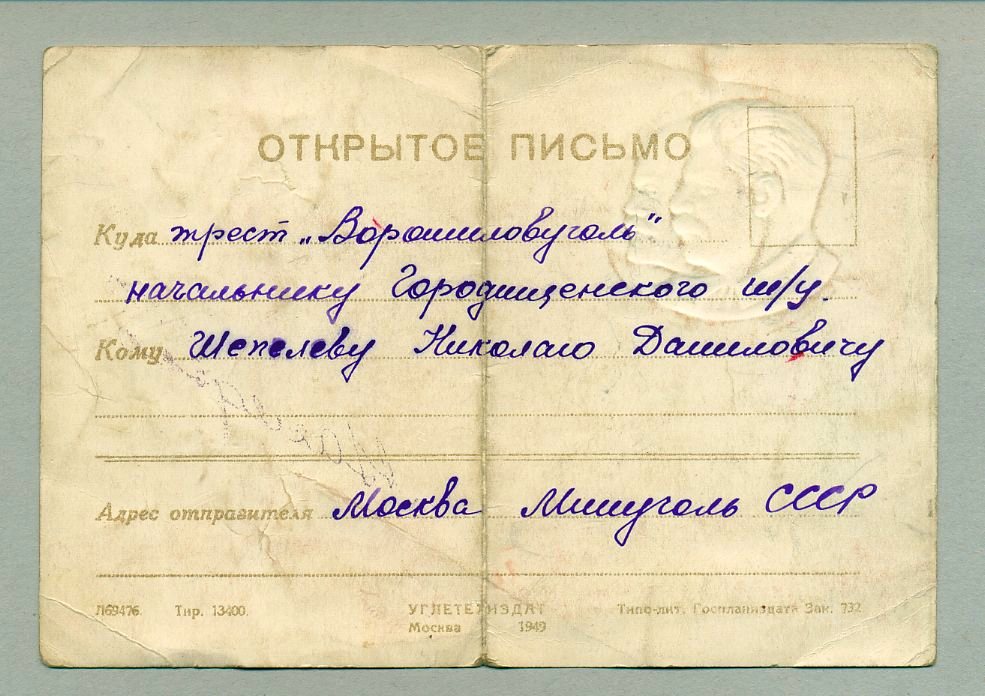 ОТКРЫТОЕ ПИСЬМО
Куда трест „Ворошиловуголь"
начальнику Городищенского ш/у.
Кому Шепелеву Николаю Даниловичу
Адрес отправителя Москва Минуголь СССР
Л69476. Тир. 13400. УГЛЕТЕХИЗДАТ Типо-лит. Госпланиздата Зак. 732
Москва 1949